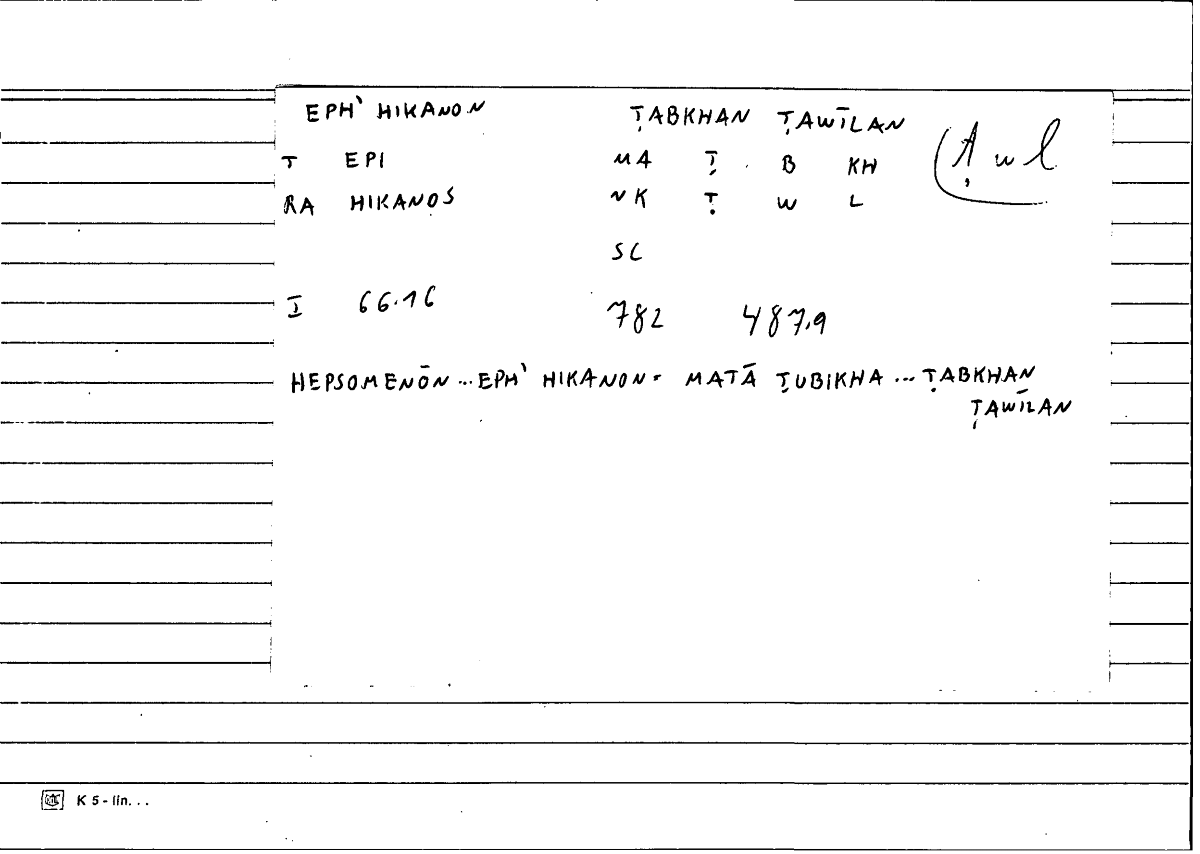 EPH' HIKANON ṬABKHAN ṬAWĪLAN
Ṭwl
T EPI MA Ṭ B KH
RA HIKANOS NK Ṭ W L
SC
I 66.16 782 487.9
HEPSOMENŌN ... EPH' HIKANON = MATĀ ṬUBIKHA ... ṬABKHAN
ṬAWĪLAN
K 5 - lin. . .